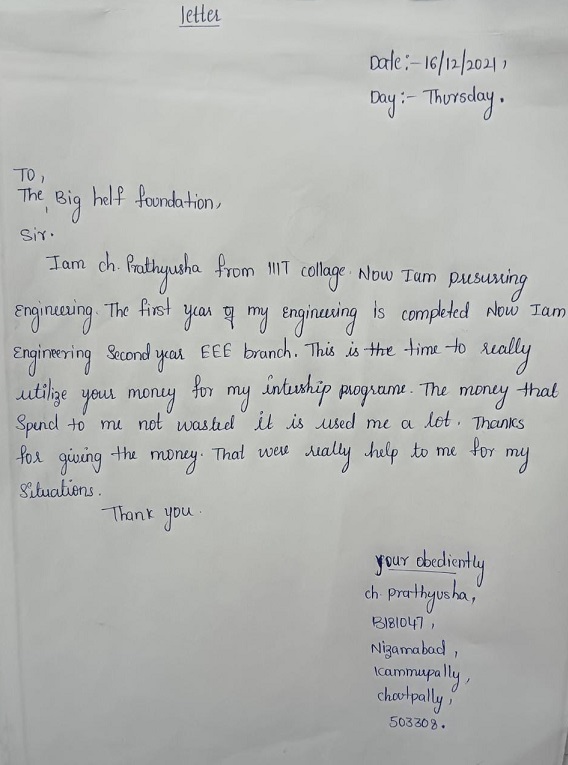 letter
Date:- 16/12/2021,
Day:- Thursday.
TO,
The Big helf foundation,
Sir.
Iam ch. Prathyusha from IIIT collage. Now Iam pusuring
Engineering. The first year of my engineering is completed Now Iam
Engineering Second year EEE branch. This is the time to really
utilize your money for my intership programe. The money that
Spend to me not wasted it is used me a lot. Thanks
for giving the money. That were really help to me for my
Situations.
Thank you.
your obediently
ch. prathyusha,
B181047,
Nizamabad,
Kammupally,
chootpally,
503308.